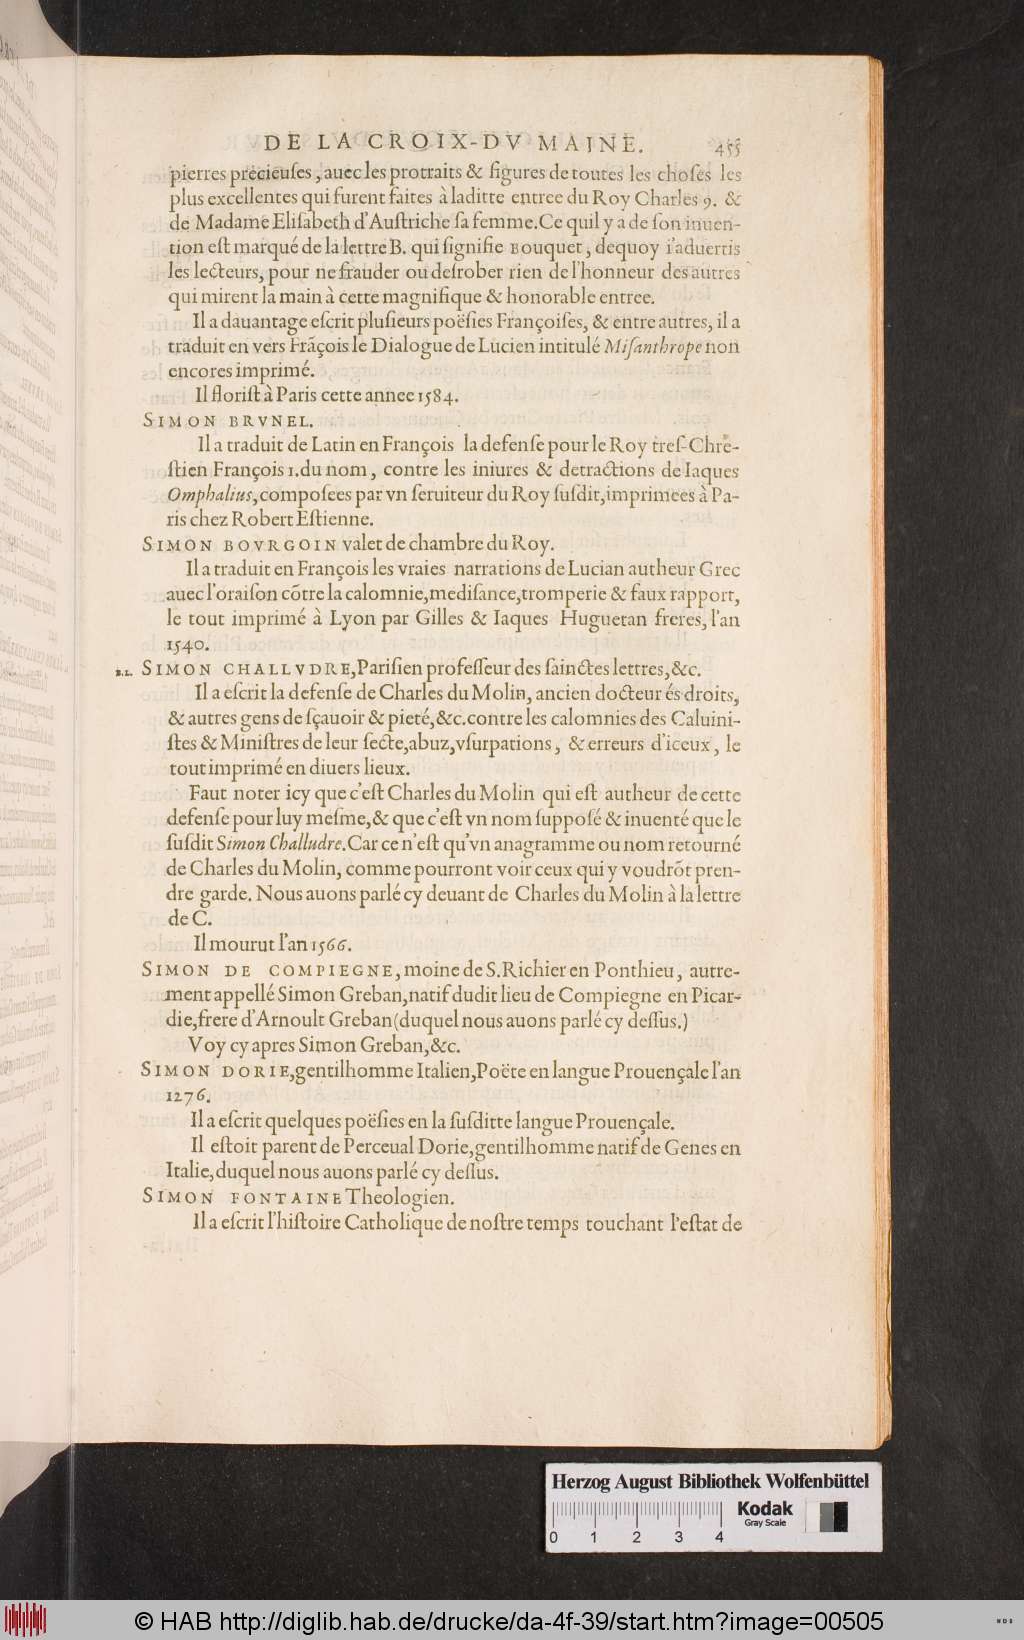 DE LA CROIX-DV MAINE. 455
pierres précieuſes, auec les protraits & figures de toutes les choſes les
plus excellentes qui furent faites à laditte entree du Roy Charles 9. &
de Madame Eliſabeth d'Auſtriche ſa femme. Ce quil y a de ſon inuen-
tion eſt marqué de la lettre B. qui ſignifie Bouquet, dequoy i'aduertis
les lecteurs, pour ne frauder ou deſrober rien de l'honneur des autres
qui mirent la main à cette magnifique & honorable entree.
Il a dauantage eſcrit pluſieurs poëſies Françoiſes, & entre autres, il a
traduit en vers Frãçois le Dialogue de Lucien intitulé Miſanthrope non
encores imprimé.
Il floriſt à Paris cette annee 1584.
SIMON BRVNEL.
Il a traduit de Latin en François la defenſe pour le Roy treſ-Chre-
ſtien François 1. du nom, contre les iniures & detractions de Iaques
Omphalius, compoſees par vn ſeruiteur du Roy ſuſdit, imprimees à Pa-
ris chez Robert Eſtienne.
SIMON BOVRGOIN valet de chambre du Roy.
Il a traduit en François les vraies narrations de Lucian autheur Grec
auec l'oraiſon cõtre la calomnie, mediſance, tromperie & faux rapport,
le tout imprimé à Lyon par Gilles & Iaques Huguetan freres, l'an
1540.
B.L. SIMON CHALLVDRE, Pariſien profeſſeur des ſainctes lettres, &c.
Il a eſcrit la defenſe de Charles du Molin, ancien docteur és droits,
& autres gens de ſçauoir & pieté, &c. contre les calomnies des Caluini-
ſtes & Miniſtres de leur ſecte, abuz, vſurpations, & erreurs d'iceux, le
tout imprimé en diuers lieux.
Faut noter icy que c'eſt Charles du Molin qui eſt autheur de cette
defenſe pour luy meſme, & que c'eſt vn nom ſuppoſé & inuenté que le
ſuſdit Simon Challudre. Car ce n'eſt qu'vn anagramme ou nom retourné
de Charles du Molin, comme pourront voir ceux qui y voudrõt pren-
dre garde. Nous auons parlé cy deuant de Charles du Molin à la lettre
de C.
Il mourut l'an 1566.
SIMON DE COMPIEGNE, moine de S. Richier en Ponthieu, autre-
ment appellé Simon Greban, natif dudit lieu de Compiegne en Picar-
die, frere d'Arnoult Greban (duquel nous auons parlé cy deſſus.)
Voy cy apres Simon Greban, &c.
SIMON DORIE, gentilhomme Italien, Poëte en langue Prouençale l'an
1276.
Il a eſcrit quelques poëſies en la ſuſditte langue Prouençale.
Il eſtoit parent de Perceual Dorie, gentilhomme natif de Genes en
Italie, duquel nous auons parlé cy deſſus.
SIMON FONTAINE Theologien.
Il a eſcrit l'hiſtoire Catholique de noſtre temps touchant l'eſtat de
Herzog August Bibliothek Wolfenbüttel
0 1 2 3 4
Kodak
Gray Scale
© HAB http://diglib.hab.de/drucke/da-4f-39/start.htm?image=00505